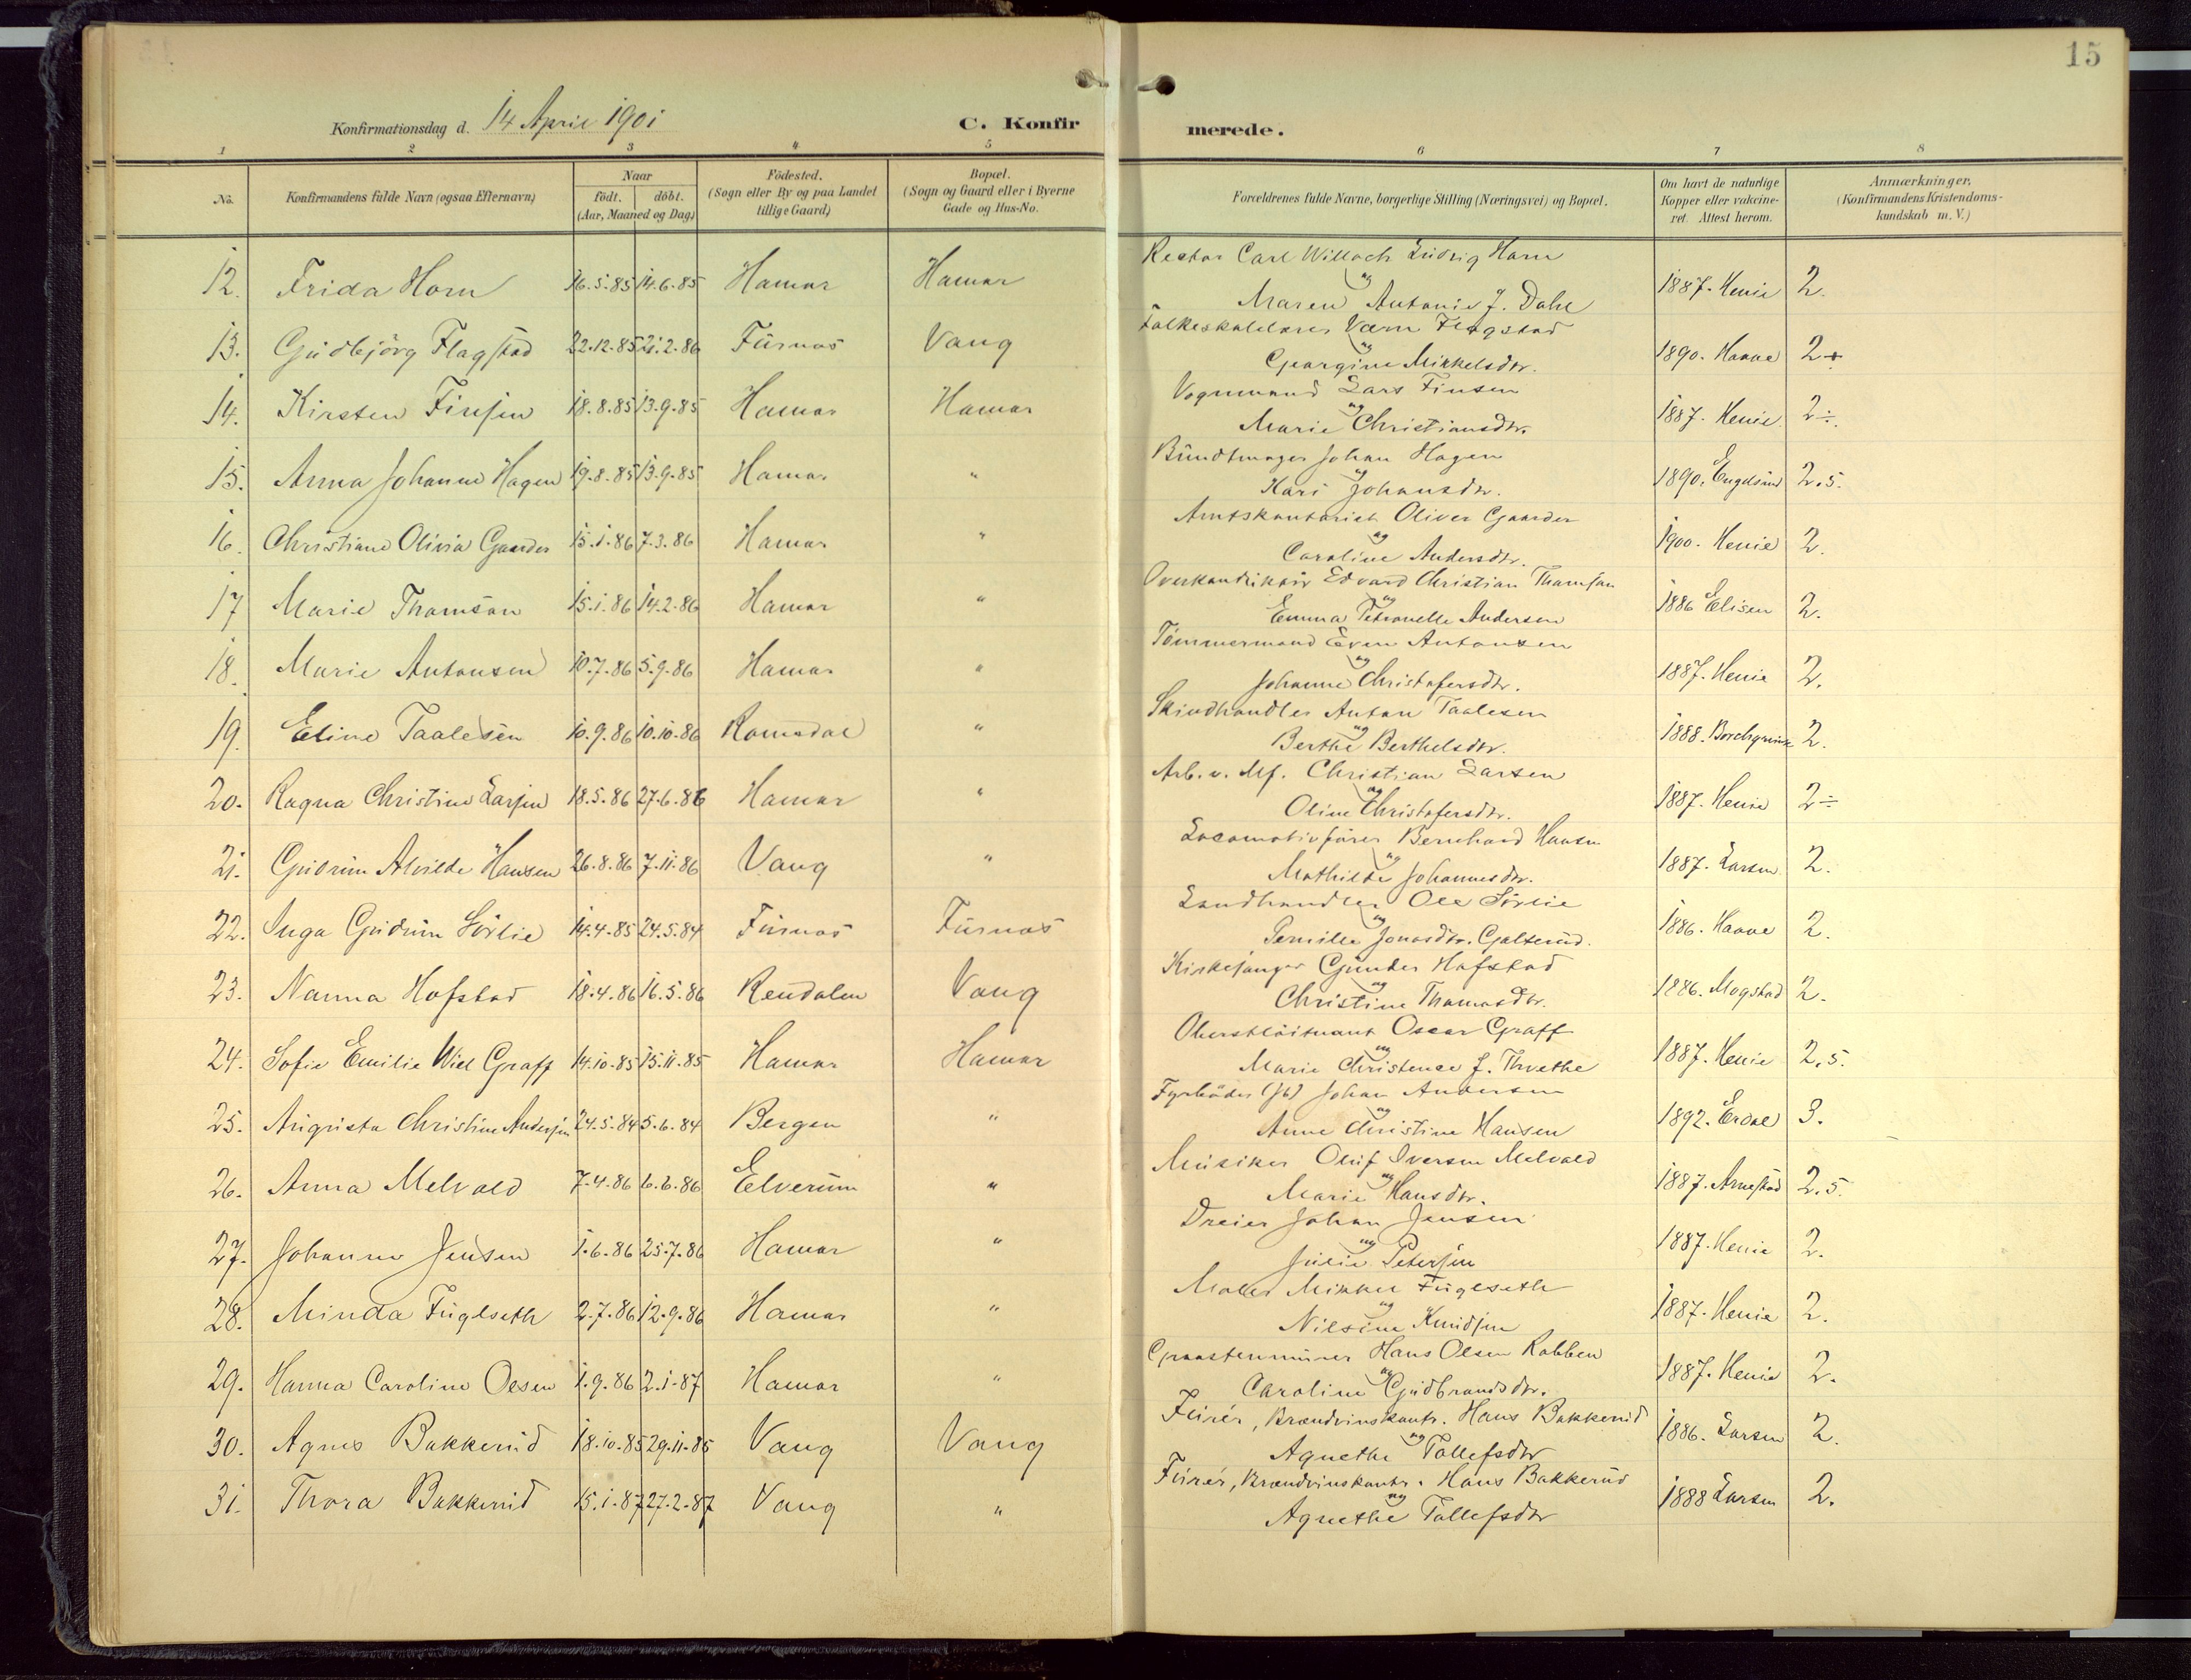 15
Konfirmationsdag d. 14 April 1901
C. Konfirmerede.
1 2 3 4 5 6 7 8
No. Konfirmandens fulde Navn (ogsaa Efternavn) Naar födt. döbt. (Aar, Maaned og Dag) Födested. (Sogn eller By og paa Landet tillige Gaard) Bopæl. (Sogn og Gaard eller i Byerne Gade og Hus-No. Forældrenes fulde Navne, borgerlige Stilling (Næringsvei) og Bopæl. Om havt de naturlige Kopper eller vakcineret. Attest herom. Anmærkninger. (Konfirmandens Kristendomskundskab m. V.)
12. Frida Horn 16.5.85 14.6.85 Hamar Hamar Rector Carl Willoch Ludvig Horn og Maren Antonie J. Dahl 1887. Henie 2.
13. Gudbjörg Flagstad 22.12.85 21.2.86 Furnæs Vang Folkeskolelærer Værn Flagstad og Georgine Mikkelsdtr. 1890. Haave 2÷
14. Kirsten Finsen 18.8.85 13.9.85 Hamar Hamar Vognmand Lars Finsen og Marie Christiansdtr. 1887. Henie 2÷.
15. Anna Johanne Hagen 19.8.85 13.9.85 Hamar " Bundtmager Johan Hagen og Kari Johansdtr. 1890. Engelsund 2.5.
16. Christiane Olivia Gaarder 15.1.86 7.3.86 Hamar " Amtskontorist Oliver Gaarder og Caroline Andersdtr. 1900. Henie 2.
17 Marie Thomson 15.1.86 14.2.86 Hamar " Overkonduktör Edvard Christian Thomson og Emma Petronelle Andersen 1886 Elisen 2.
18. Marie Antonsen 10.7.86 5.9.86 Hamar " Tömmermand Even Antonsen og Johanne Christofersdtr. 1887. Henie 2.
19. Eline Taalesen 10.9.86 10.10.86 Romsdal " Skindhandler Anton Taalesen og Berthe Berthelsdtr. 1888. Borchgrevink 2.
20. Ragna Christine Larsen 18.5.86 27.6.86 Hamar " Arb. v. Mf. Christian Larsen og Oline Christofersdtr. 1887. Henie 2÷
21. Gudrun Alvilde Hansen 26.8.86 7.11.86 Vang " Locomotivförer Bernhard Hansen og Mathilde Johannesdtr. 1887. Larsen 2.
22. Inga Gudrun Sörlie 14.4.85 24.5.84 Furnæs Furnæs Landhandler Ole Sörlie og Pernille Jonasdtr. Galterud. 1886. Haave 2.
23. Nanna Hofstad 18.4.86 16.5.86 Rendalen Vang Kirkesanger Gunder Hofstad og Christine Thomasdtr. 1886. Mogstad 2.
24. Sofie Emilie Wiel Graff 14.10.85 15.11.85 Hamar Hamar Oberstlöitnant Oscar Graff og Marie Christence J. Threthe 1887. Henie 2.5.
25. Augusta Christine Andersen 24.5.84 5.6.84 Bergen " Fyrböder (Jb) Johan Andersen og Anne Christine Hansen 1892. Erdal 3.
26. Anna Melvold 7.4.86 6.6.86 Elverum " Musiker Oluf Iversen Melvold og Marie Hansdtr. 1887. Arnestad 2.5.
27. Johanne Jensen 1.6.86 25.7.86 Hamar " Dreier Johan Jensen og Julie Petersen 1887. Henie 2.
28. Minda Fuglseth 2.7.86 12.9.86 Hamar " Maler Mikkel Fuglseth og Nilsine Knudsen 1887. Henie 2.
29. Hanna Caroline Olsen 1.9.86 2.1.87 Hamar " Graastensmurer Hans Olsen Robben og Caroline Gudbrandsdtr. 1887. Henie 2.
30. Agnes Bakkerud 18.10.85 29.11.85 Vang Vang Furér, Brændvinskontr. Hans Bakkerud og Agnethe Tollefsdtr 1886. Larsen 2.
31. Thora Bakkerud 15.1.87 27.2.87 Vang " Furér, Brændvinskontr. Hans Bakkerud og Agnethe Tollefsdtr 1888 Larsen 2.